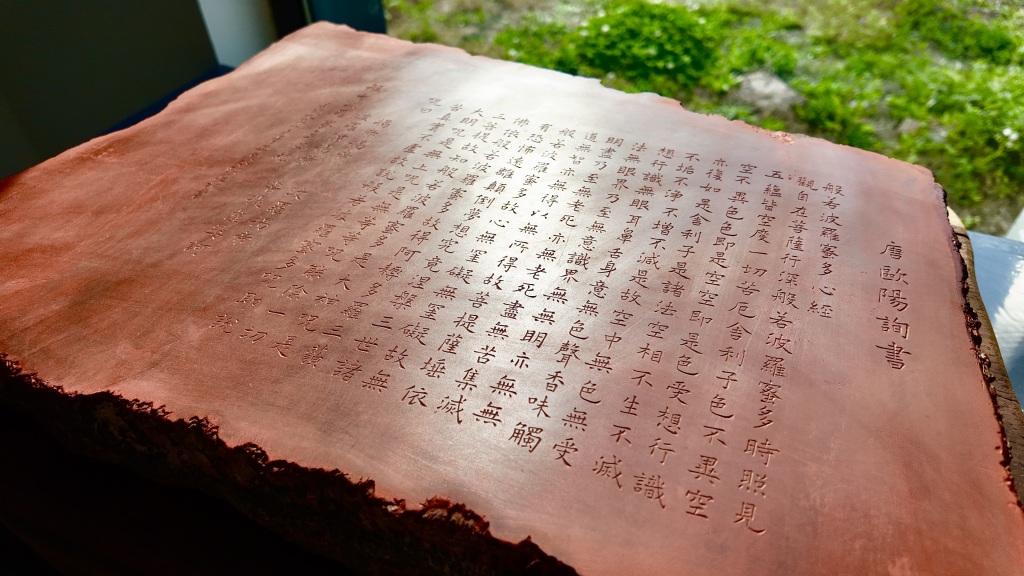 唐歐陽詢書
般若波羅蜜多心經
觀自在菩薩行深般若波羅蜜多時照見
五蘊皆空度一切苦厄舍利子色不異空
空不異色色即是空空即是色受想行識
亦復如是舍利子是諸法空相不生不滅
不垢不淨不增不減是故空中無色無受
想行識無眼耳鼻舌身意無色聲香味觸
法無眼界乃至無意識界無無明亦無無
明盡乃至無老死亦無老死盡無苦集滅
道無智亦無得以無所得故菩提薩埵依
般若波羅蜜多故心無罣礙無罣礙故無
有恐怖遠離顛倒夢想究竟涅槃三世諸
佛依般若波羅蜜多故得阿耨多羅三藐
三菩提故知般若波羅蜜多是大神咒是
大明咒是無上咒是無等等咒能除一切
苦真實不虛故說般若波羅蜜多咒即說
咒曰